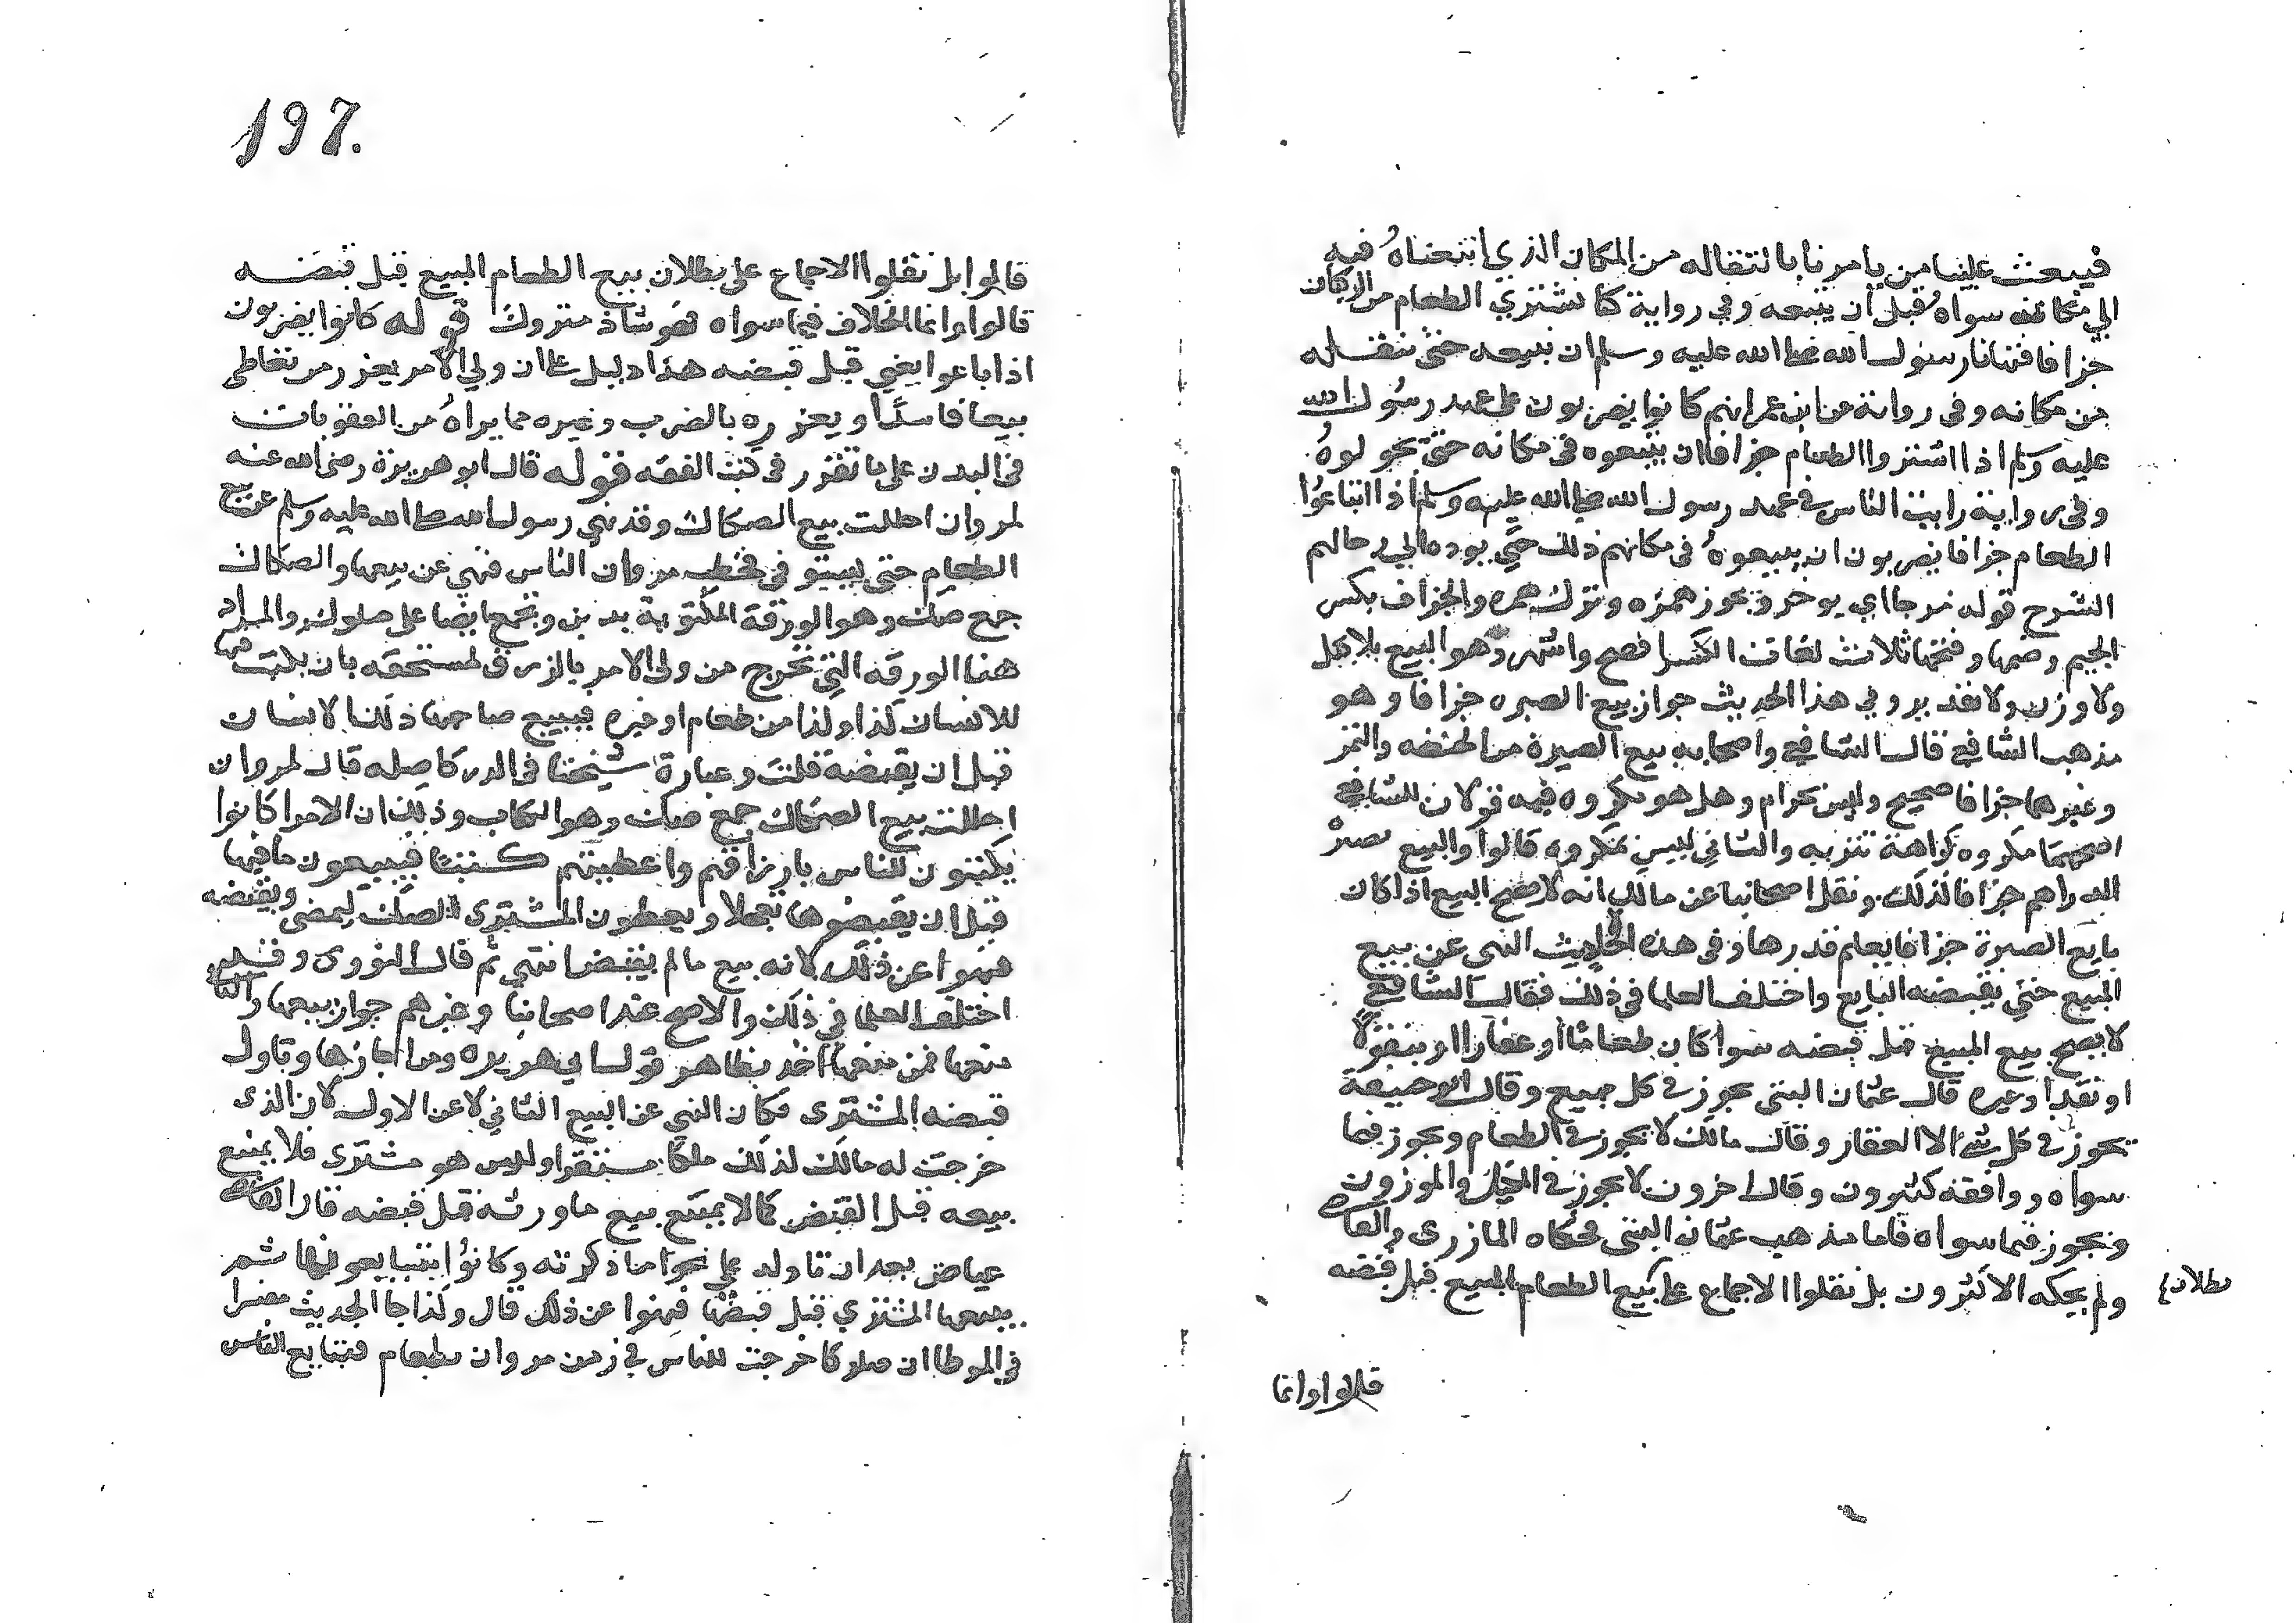 فيبعث علينا من يامرنا بانتقاله من المكان الذي ابتعناه فيه
الي مكان سواه قبل ان يبتعه وفي رواية كنا نشتري الطعام من الركبان
جزافا فنهانا رسول الله صلى الله عليه وسلم ان نبيعه حتى ننقله
من مكانه وفى رواية عن ابن عمر انهم كانوا يضربون على عهد رسول الله
عليه وسلم اذا اشتروا الطعام جزافا ان يبيعوه في مكانه حتى يحولوه
وفى رواية رايت الناس في عهد رسول الله صلى الله عليه وسلم اذا ابتاعوا
الطعام جزافا يضربون ان يبيعوه في مكانهم ذلك حتي يووه الي رحالهم
الشرح قوله مرجا اي يوخر ويجوز همزه وترك همزه والجزاف بكسر
الجيم وضمها وفتحها ثلاث لغات الكسر افصح واشهر وهو البيع بلا كيل
ولا وزن ولا تقدير وفي هذا الحديث جواز بيع الصبره جزافا وهو
مذهب الشافعي قال الشافعي واصحابه بيع الصبرة من الحنطه والتمر
وغيرها جزافا صحيح وليس بحرام وهل هو مكروه فيه قولان للشافعي
اصحهما مكروه كراهة تنزيه والثاني ليس بمكروه قالوا والبيع بصبرة
الدراهم جزافا لذلك ونقل اصحابنا عن مالك انه لا يصح البيع اذا كان
بايع الصبرة جزافا يعلم قدرها وفى هذه الاحاديث النهى عن بيع
المبيع حتي يقبضه البايع واختلف العلما في ذلك فقال الشافعي
لا يصح بيع المبيع قبل قبضه سوا كان طعاما او عقارا او منقولا
او نقدا وغيره قال عثمان البتى يجوز في كل مبيع وقال ابو حنيفة
يجوز في كل شي الا العقار وقال مالك لا يجوز في الطعام ويجوز فيما
سواه ووافقه كثيرون وقال اخرون لا يجوز في المكيل والموزون
ويجوز فيما سواه فاما مذهب عثمان البتي فحكاه المازرى والقاضي
ولم يحكه الاكثرون بل نقلوا الاجماع على بيع الطعام المبيع قبل قبضه
بطلان
قالوا وانما
197.
قالوا بل نقلوا الاجماع على بطلان بيع الطعام المبيع قبل قبضه
قالوا وانما الخلاف فيما سواه فهو شاذ متروك قوله كانوا يضربون
اذا باعوا يعني قبل قبضه هذا دليل على ان ولي الامر يعزر من تعاطى
بيعا فاسدا ويعزره بالضرب وغيره مما يراه من العقوبات
في البدن على ما تقرر في كتب الفقه قوله قال ابو هريرة رضى الله عنه
لمروان احللت بيع الصكاك وقد نهي رسول الله صلى الله عليه وسلم عن بيع
الطعام حتى يستو في فخطب مروان الناس فنهي عن بيعها والصكاك
جمع صك وهو الورقة المكتوبة بدين وتجمع ايضا على صكوك والمراد
هنا الورقه التي تخرج من ولي الامر بالرزق لمستحقه بان يكتب فيها
للانسان كذا وكذا من طعام او غيره فيبيع صاحبها ذلك لانسان
قبل ان يقبضه قلت وعبارة شيخنا في الدر كاصله قال لمروان
احللت بيع الصكاك جمع صك وهو الكتاب وذلك ان الامرا كانوا
يكتبون للناس بارزاقهم واعطيتهم كتبا فيبيعون ما فيها
قبل ان يقبضوها تعجلا ويعطون المشتري الصك ليمضى ويقبضه
فنهوا عن ذلك لانه بيع ما لم يقبض انتهي ثم قال النووى وقد
اختلف العلما في ذلك والاصح عند اصحابنا وغيرهم جواز بيعها والثاني
منعها فمن منعها اخذ بظاهر قول ابي هريره ومن اجازها وتاول
قبضه المشترى فكان النهي عن البيع الثاني لا عن الاول لان الذى
خرجت له مالك لذلك ملكا مستقرا وليس هو مشترى فلا يمتنع
بيعه قبل القبض كما لا يمتنع بيع ما ورثه قبل قبضه قال القاضي
عياض بعد ان تاوله علي نحو ما ذكرته وكانوا يتبايعونها ثم
يبيعها المشتري قبل قبضها فنهوا عن ذلك قال ولذا جا الحديث مفسرا
في الموطا ان صكوكا خرجت للناس في زمن مروان بطعام فتبايع الناس